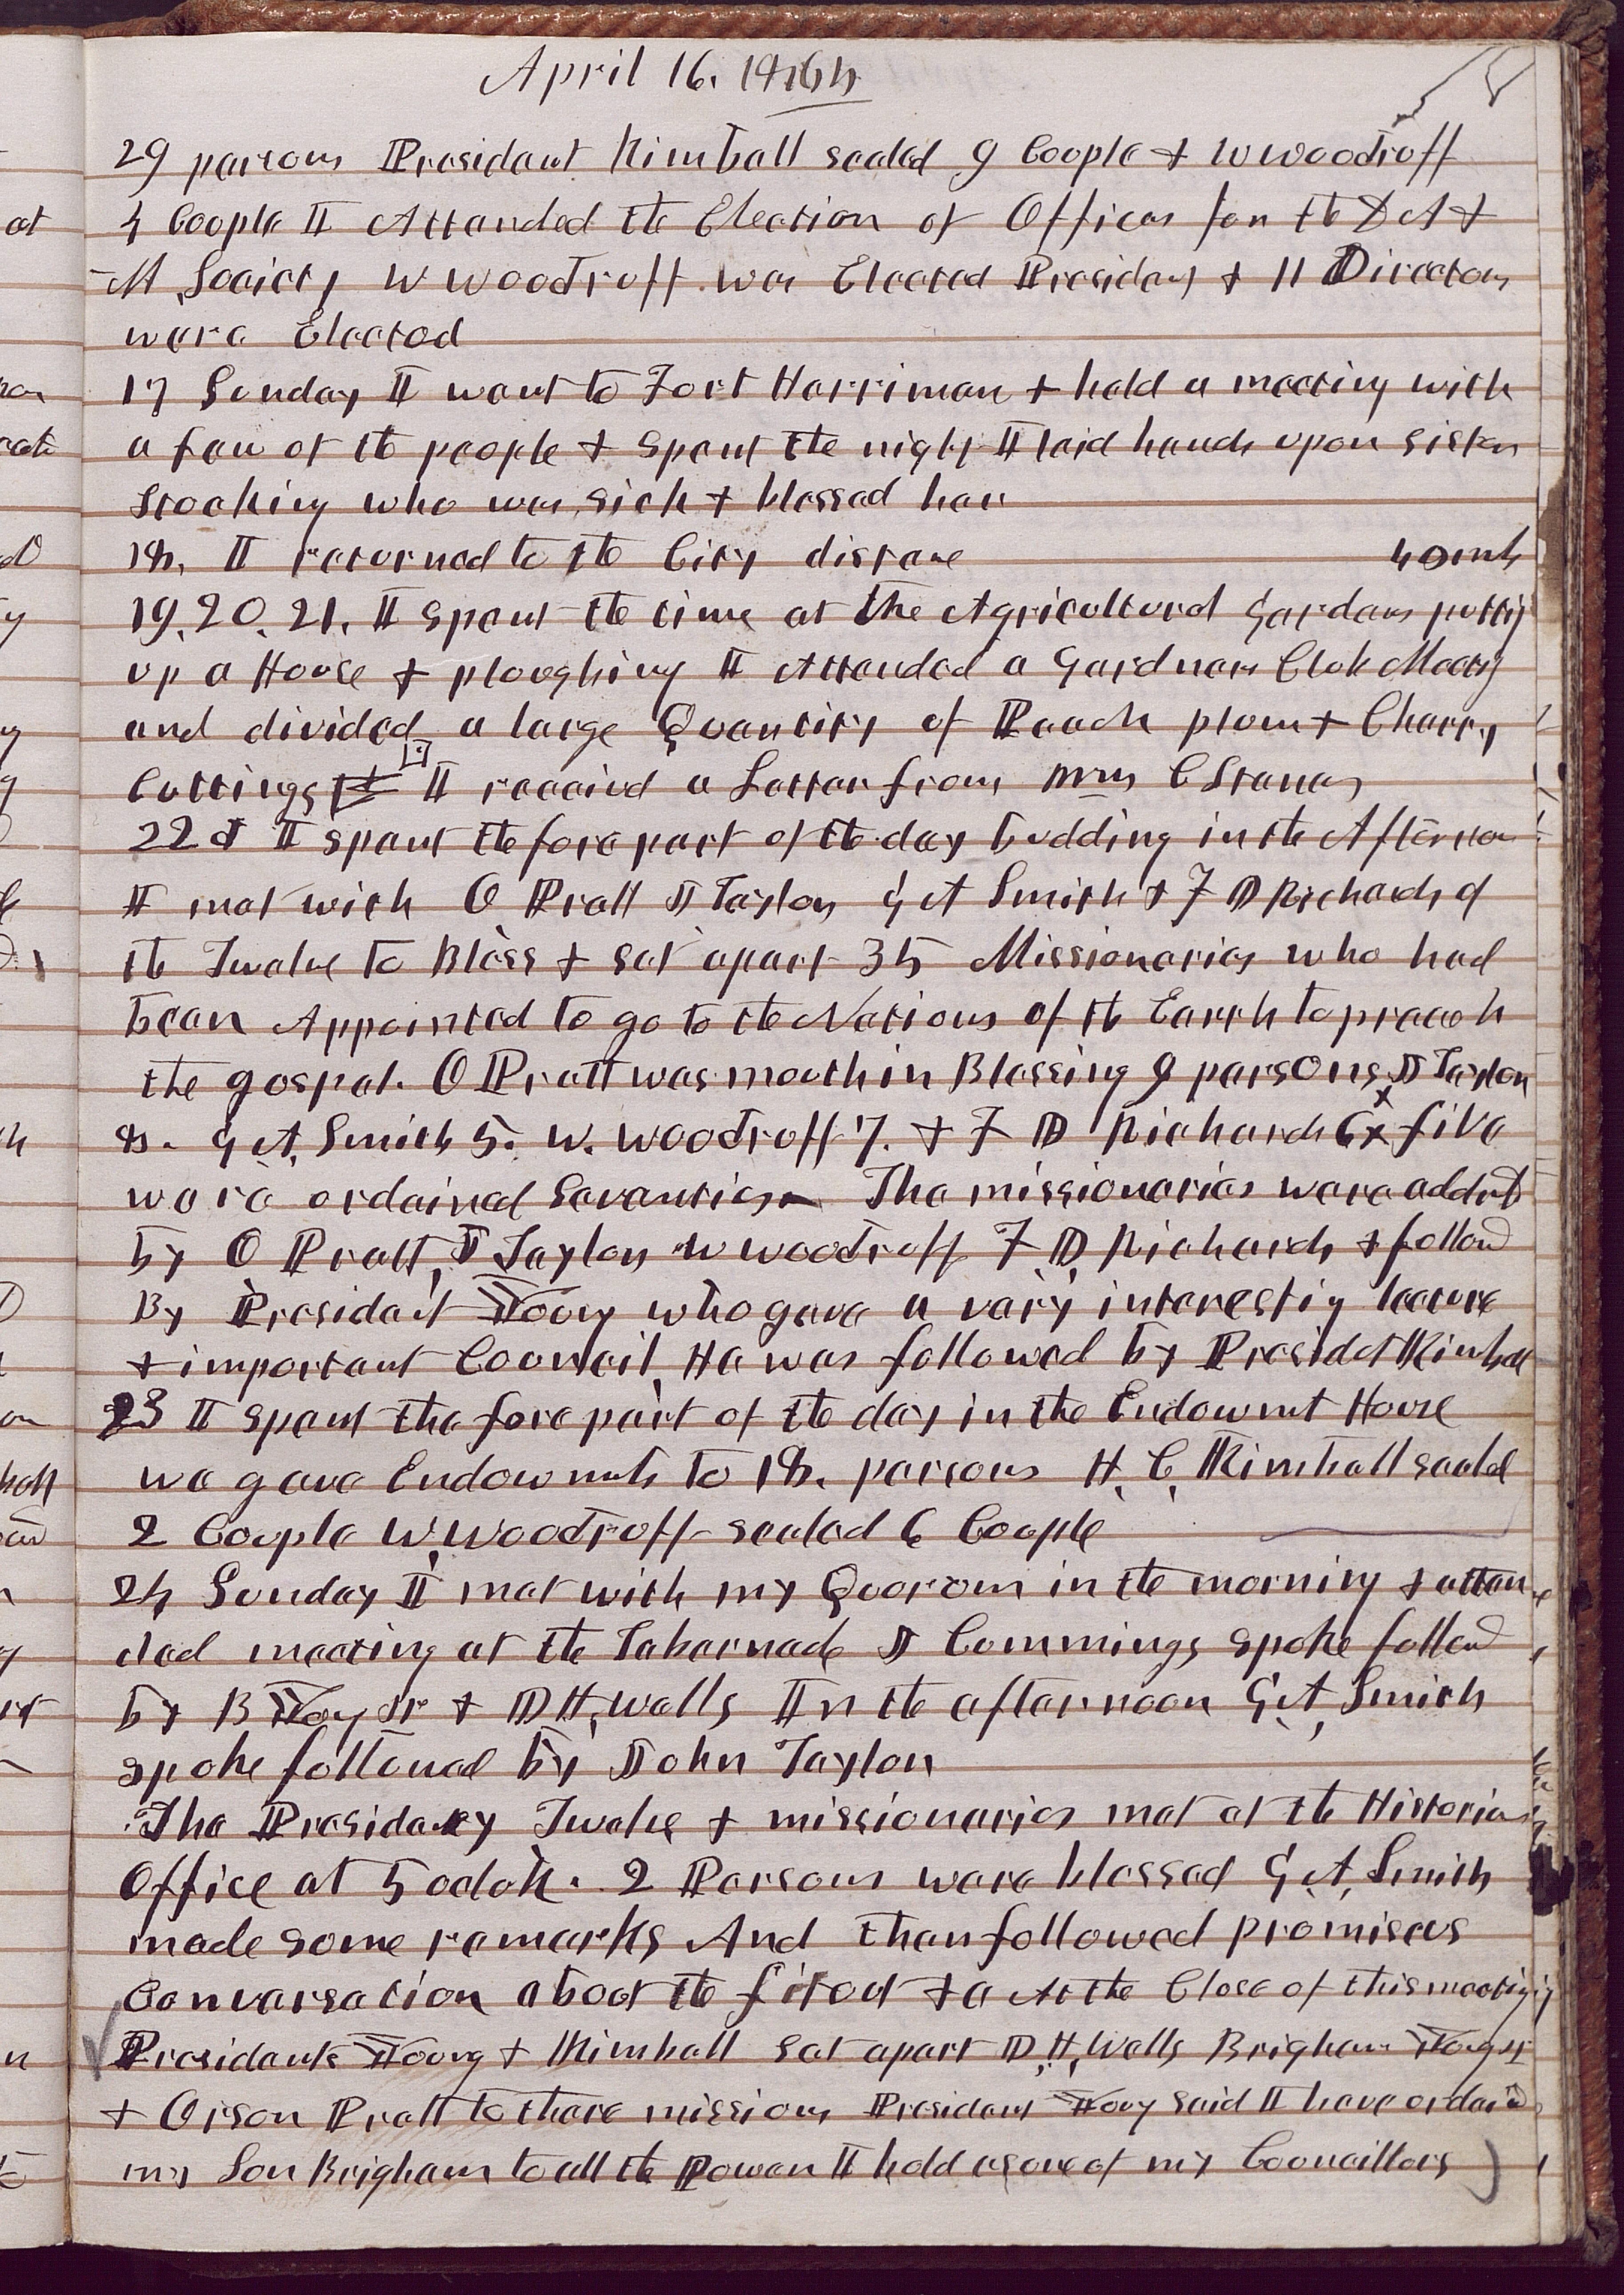 April 16. 1864
29 persons President Kimball sealed 9 Couple & W Woodruff
4 Couple I Attended the Election of Officers for the D A &
M Society W Woodruff was Elected President & 11 Directors
were Elected
17 Sunday I went to Fort Harriman & held a meeting with
a few of the people & spent the night I laid hands upon sister
Stocking who was sick & blessed her
18. I returned to the City distane 40 mls
19. 20. 21. I spent the time at the Agricultural Gardens puttig
up a House & ploughing I Attended a Gardners Club Meetig
and divided a large Quantity of Peach plum & Cherry
Cuttings I received a Letter from Mrs C Stanes
22d I spent the fore part of the day budding in the Afternoon
I met with O Pratt J Taylor G A Smith & F D Richards of
the Twelve to Bless & set apart 35 Missionaries who had
been Appointed to go to the Nations of the Earth to preach
the gospel. O Pratt was mouth in Blessing 9 persons J Taylor
8. G A Smith 5. W. Woodruff 7. & F D Richards 6 x five
were ordained Seventies The missionaries were addrsd
by O Pratt, J Taylor W Woodruff F D Richards & follow'd
By President Young who gave a very interestig lecture
& important Council. He was followed by Presidet Kimball
23 I spent the fore part of the day in the Endowmt House
we gave Endowmts to 18. persons H. C. Kimball sealed
2 Couple W. Woodruff sealed 6 Couple
24 Sunday I met with my Quorum in the morning & atten
ded meeting at the Tabernacle J Cummings spoke follow'd
by B Young Jr & D H. Wells In the afternoon G. A. Smith
spoke followed by John Taylor
The Presidency Twelve & missionaries met at the Historians
Office at 5 oclok. 2 Persons were blessed G. A. Smith
made some remarks And then followed promiscus
Conversation about the &c At the Close of this meetig
Presidents Young & Kimball set apart D. H. Wells Brigham Young Jr
& Orson Pratt to there missions President Young said I have ordaind
my Son Brigham to all the Power I hold as one of my Councillors